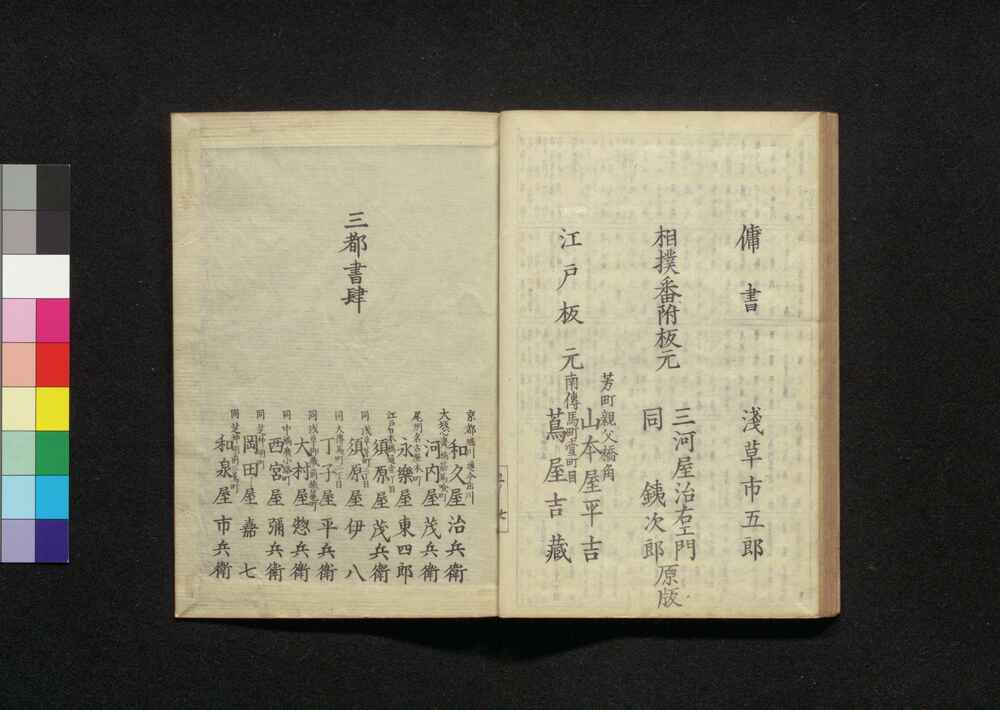 傭書　淺草市五郎
相撲番附板元　三河屋治右エ門
同　銕次郎
原版
江戸板元
芳町親父橋角　山本屋平吉
南傳馬町壹町目　蔦屋吉藏
三都書肆
京都堀川通今出川　和久屋治兵衛
河内屋茂兵衛
尾州名古屋本町　永樂屋東四郎
須原屋茂兵衛
須原屋伊八
同大傳馬町二丁目　丁子屋平兵衛
大村屋惣兵衛
西宮屋彌兵衛
岡田屋嘉七
和泉屋市兵衛